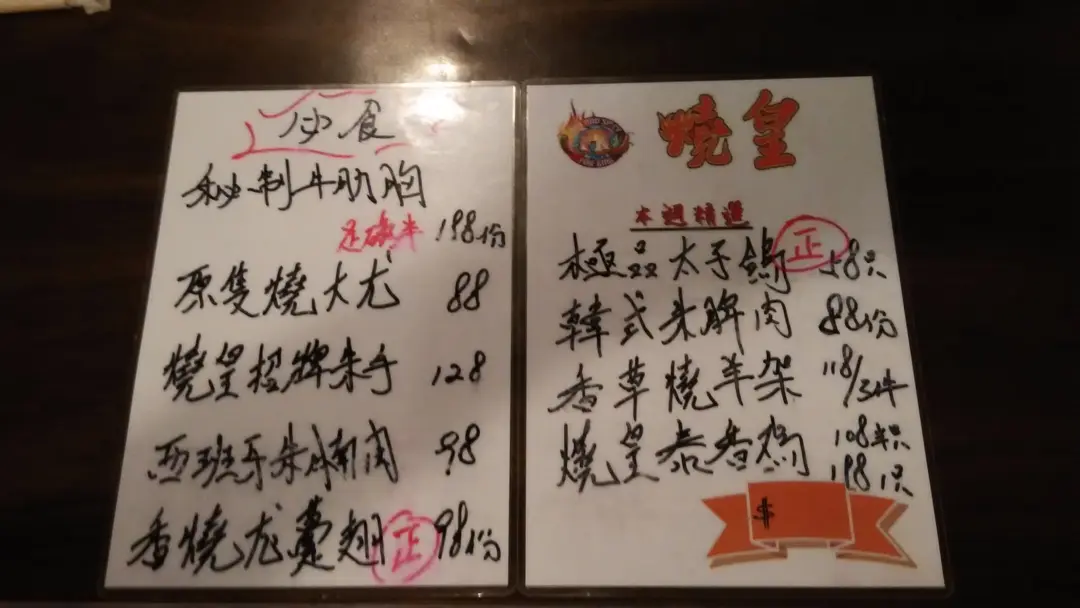 必食
秘制牛肋胸
足磅半 198份
原隻燒大尤 88
燒皇招牌朱手 128
西班牙朱腩肉 98
香燒龙躉翅 正 98份
燒皇
本週精選
極品太子鴿 正 58只
韓式朱脾肉 88份
香草燒羊架 118/3件
燒皇泰香鸡 108半只
198 1只
$